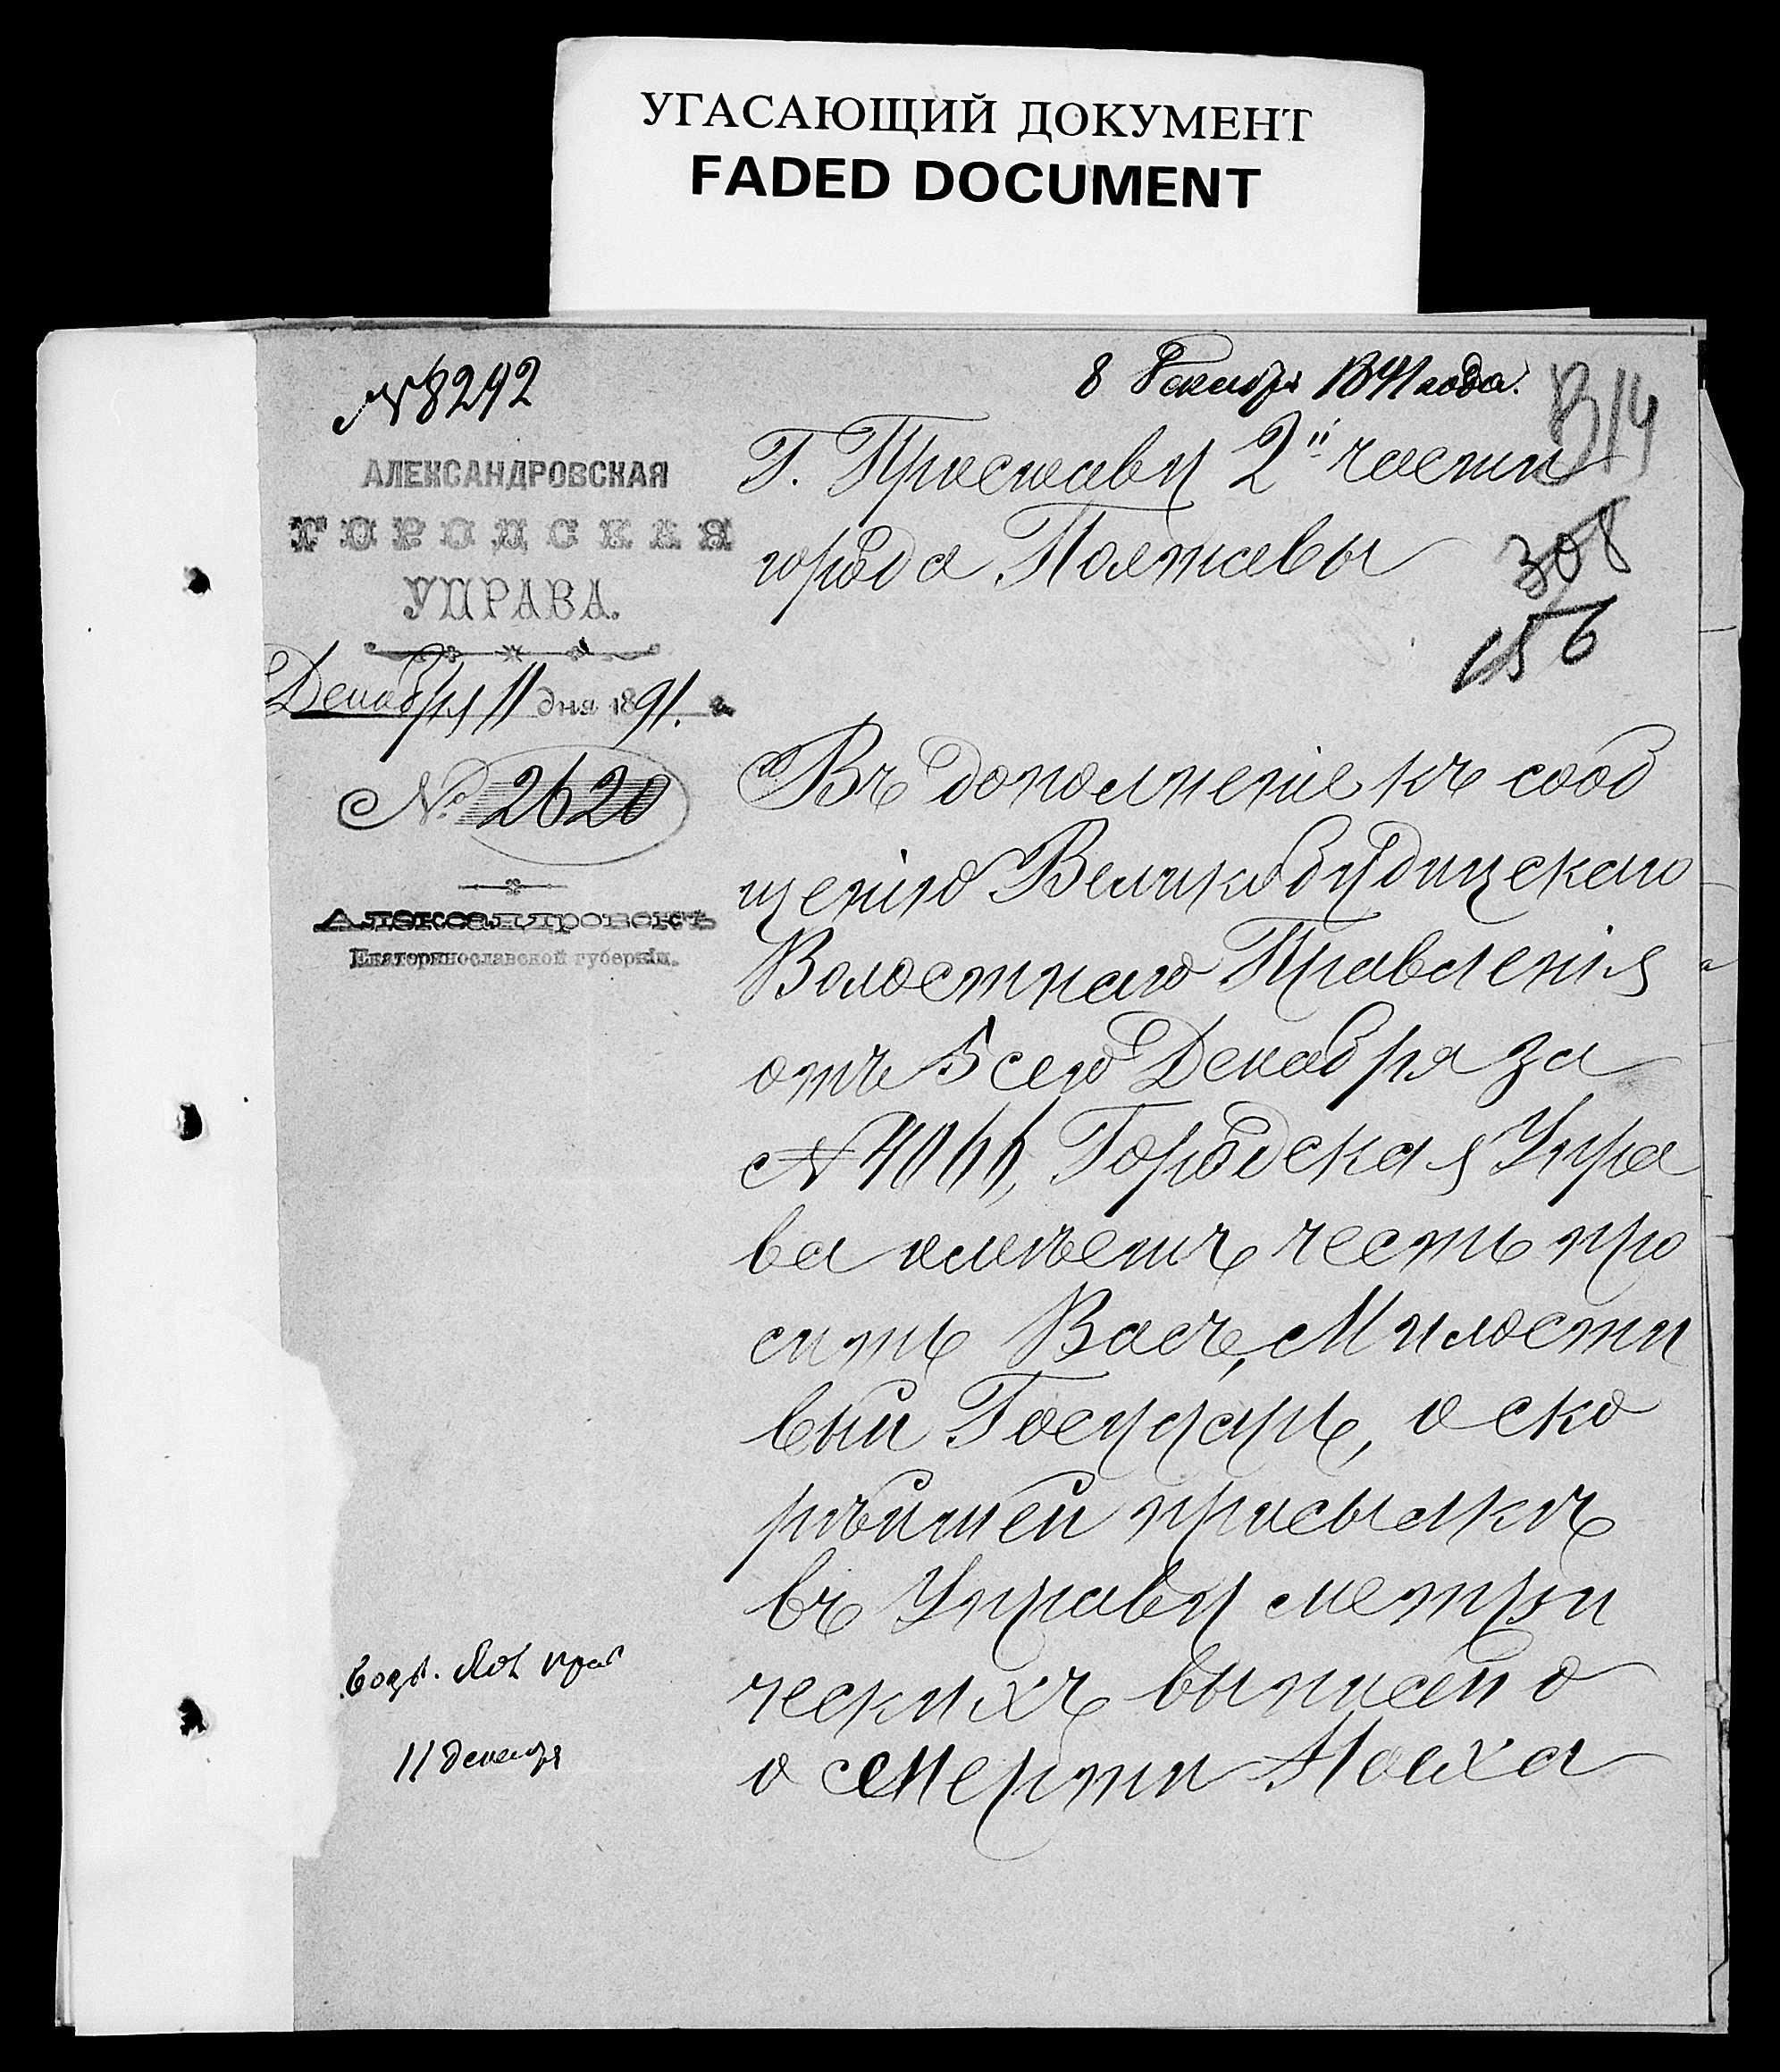 УГАСАЮЩИЙ ДОКУМЕНТ
FADED DOCUMENT
№ 8292
8 Декабря 1891 года.
314
308
156
АЛЕКСАНДРОВСКАЯ
ГОРОДСКАЯ
УПРАВА.
Декабря 11 дня 1891. г.
№ 2620
Александровскъ
Екатеринославской губерніи.
Г. Приставу 2й части
города Полтавы
Въ дополненіе къ сооб
щенію Великобудищскаго
Волостнаго Правленія
отъ 5 сего Декабря за
№ 4066, Городская Упра
ва имѣетъ честь про
сить Васъ, Милости
вый Государь, о ско
рѣйшей присылкѣ
въ Управу метри
ческихъ выписей о
о смерти Ноаха
11 декабря